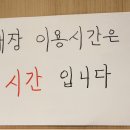 이용시간은
시간 입니다